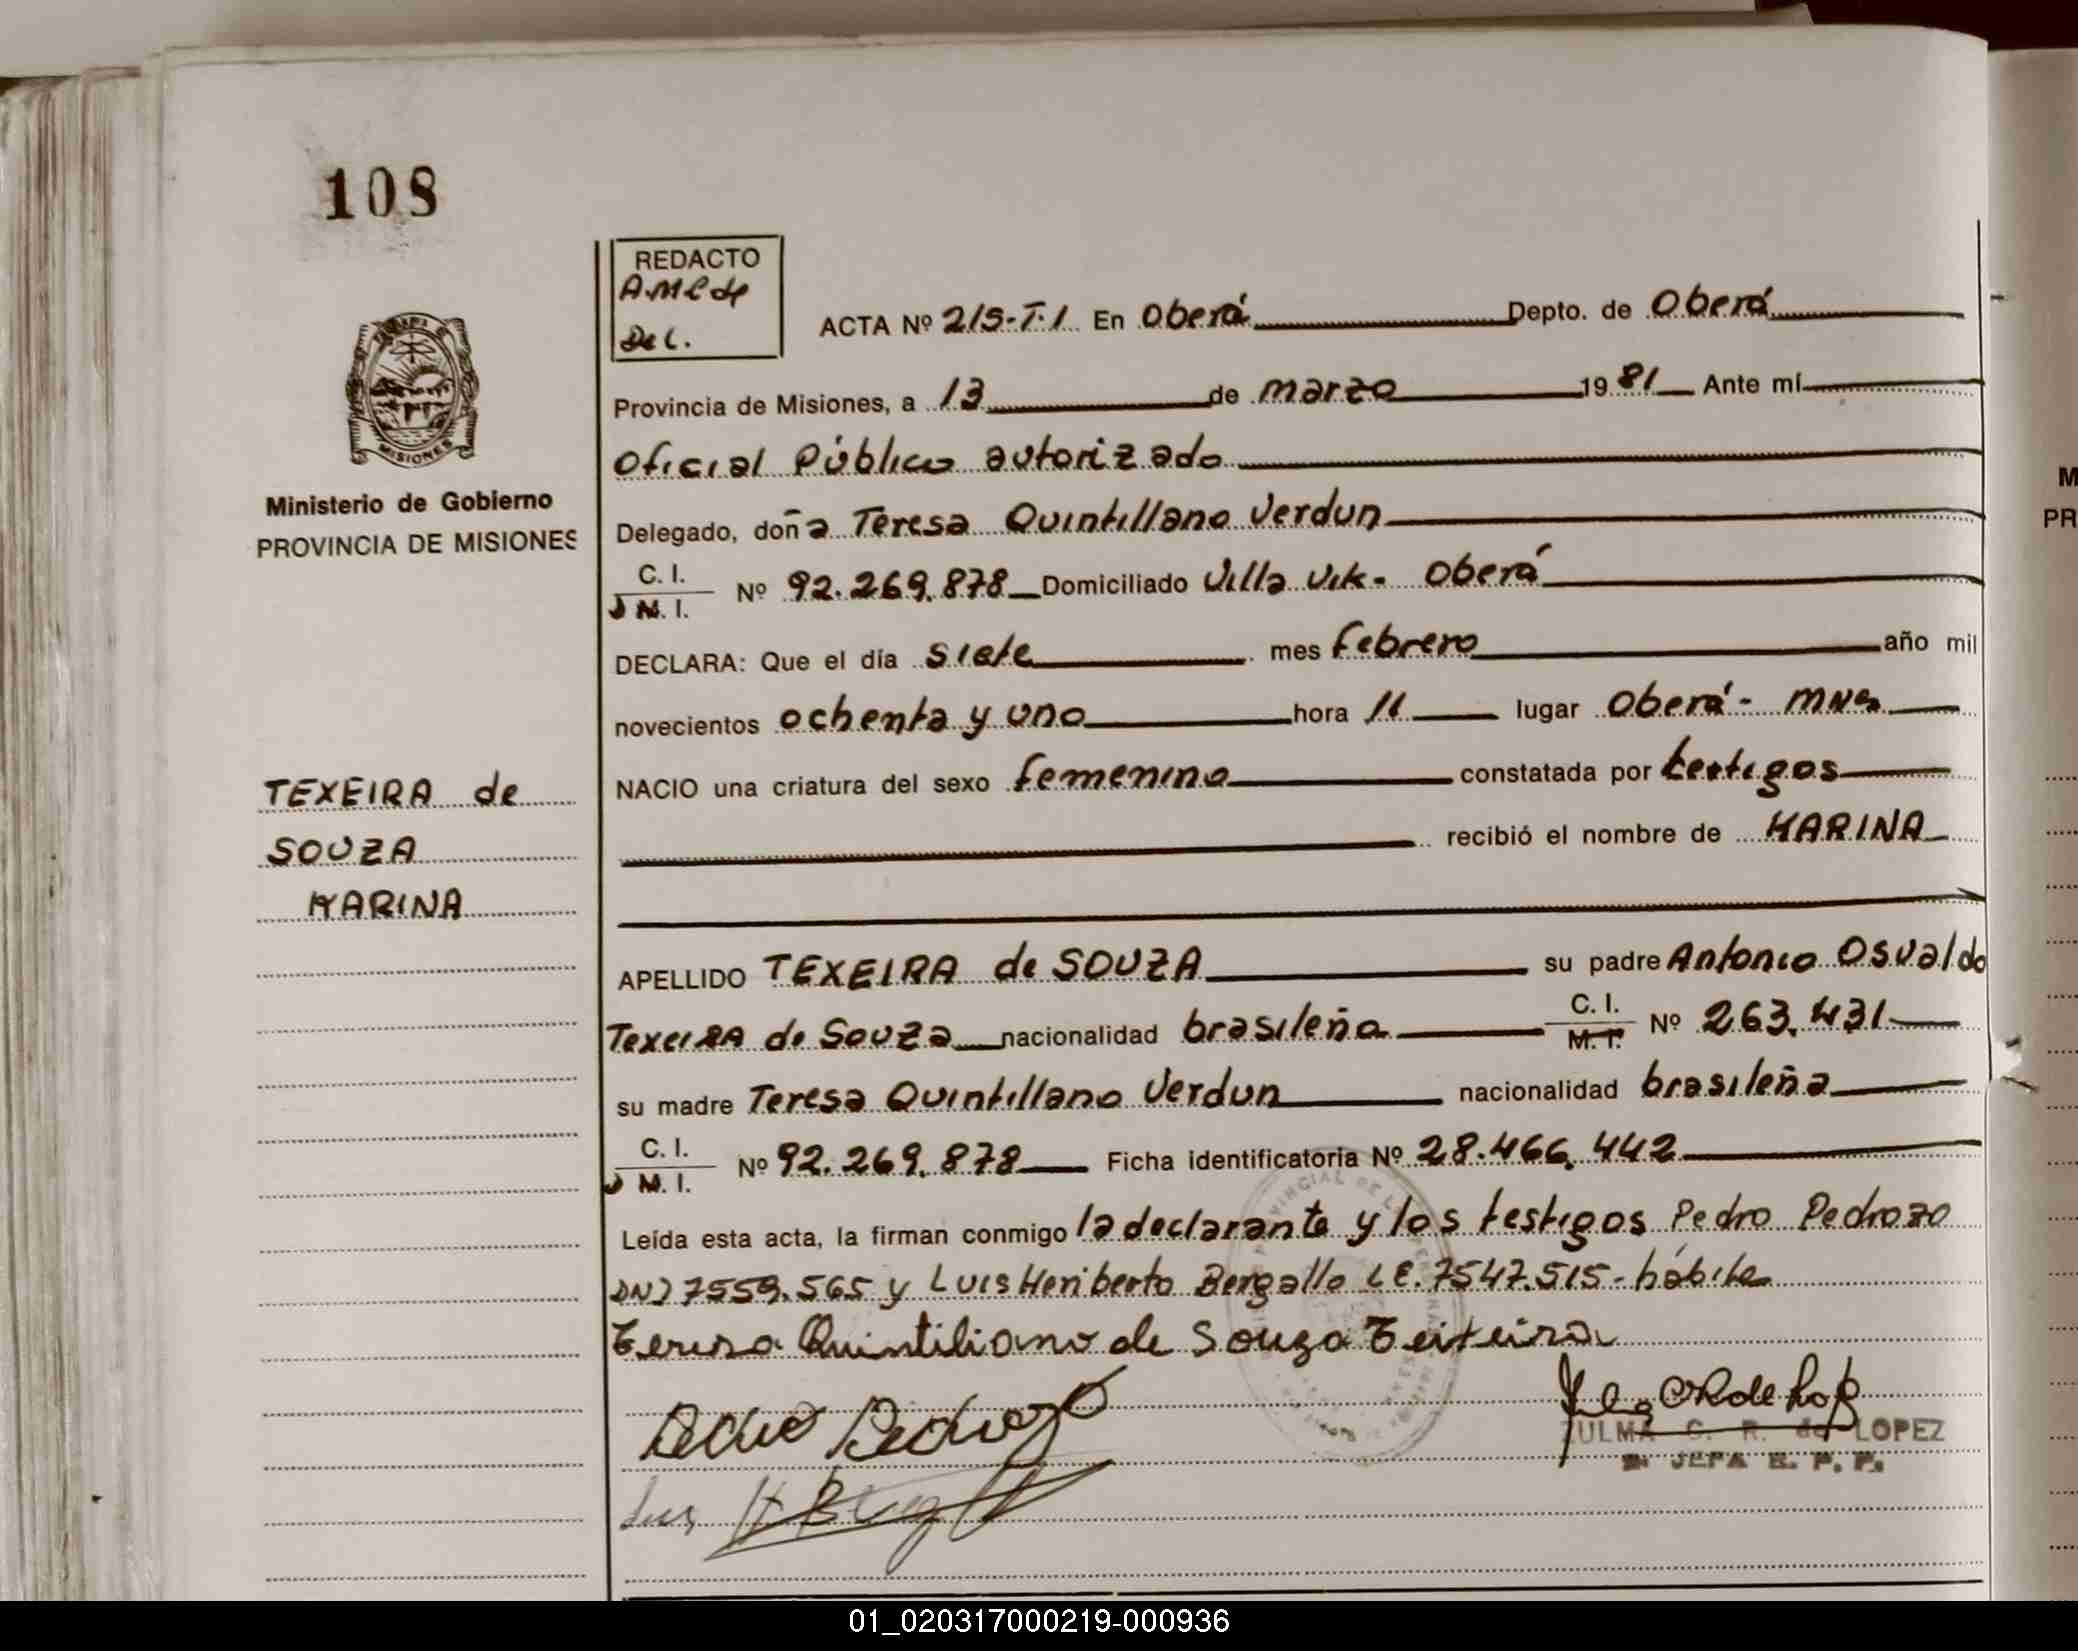 108
REDACTO
ACTA Nº 215-T.1 En Oberá Depto. de Oberá
Provincia de Misiones, a 13 de marzo 1981 Ante mí
Oficial Público autorizado
Delegado, doña Teresa Quintillano Verdun
C. I.
M. I. Nº 92.269.878 Domiciliado Villa Vik- Oberá
DECLARA: Que el día siete mes febrero año mil
novecientos ochenta y uno hora 11 lugar Oberá- Mnes
NACIO una criatura del sexo femenino constatada por testigos
recibió el nombre de KARINA
APELLIDO TEXEIRA de SOUZA su padre Antonio Osvaldo
Texeira de Souza nacionalidad brasileña C. I. M. I. Nº 263.431
su madre Teresa Quintillano Verdun nacionalidad brasileña
C. I.
M. I. Nº 92.269.878 Ficha identificatoria Nº 28.466.442
Leída esta acta, la firman conmigo la declarante y los testigos Pedro Pedrozo
DNI 7559.565 y Luis Heriberto Bergallo LE. 7547.515- hábiles
Teresa Quintiliano de Souza Teixeira
Pedro Pedrozo
Luis H
ZULMA C. R. de LOPEZ
JEFA R. P. P.
MISIONES
Ministerio de Gobierno
PROVINCIA DE MISIONES
TEXEIRA de
SOUZA
KARINA
M
PR
01_020317000219-000936